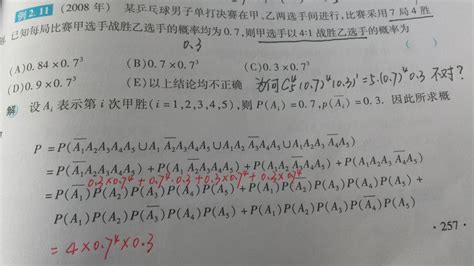 例 2.11 (2008 年) 某乒乓球男子单打决赛在甲、乙两选手间进行,比赛采用 7 局 4 胜
已知每局比赛甲选手战胜乙选手的概率均为 0.7,则甲选手以 4:1 战胜乙选手的概率为
0.3 ( )
(A)0.84×0.7³ (B)0.7×0.7³ (C)0.3×0.7³
(D)0.9×0.7³ (E)以上结论均不正确 为何C₅⁴(0.7)⁴(0.3)¹=5·(0.7)⁴·0.3 不对?
解 设 Aᵢ 表示第 i 次甲胜(i=1,2,3,4,5),则 P(Aᵢ)=0.7,p(A̅ᵢ)=0.3. 因此所求概
P=P(A̅₁A₂A₃A₄A₅∪A₁A̅₂A₃A₄A₅∪A₁A₂A̅₃A₄A₅∪A₁A₂A₃A̅₄A₅)
=P(A̅₁A₂A₃A₄A₅)+P(A₁A̅₂A₃A₄A₅)+P(A₁A₂A̅₃A₄A₅)+P(A₁A₂A₃A̅₄A₅)
0.3×0.7⁴+0.7⁴·0.3+0.3×0.7⁴+0.7⁴×0.3
=P(A̅₁)P(A₂)P(A₃)P(A₄)P(A₅)+P(A₁)P(A̅₂)P(A₃)P(A₄)P(A₅)+
P(A₁)P(A₂)P(A̅₃)P(A₄)P(A₅)+P(A₁)P(A₂)P(A₃)P(A̅₄)P(A₅)
=4×0.7⁴×0.3
·257·